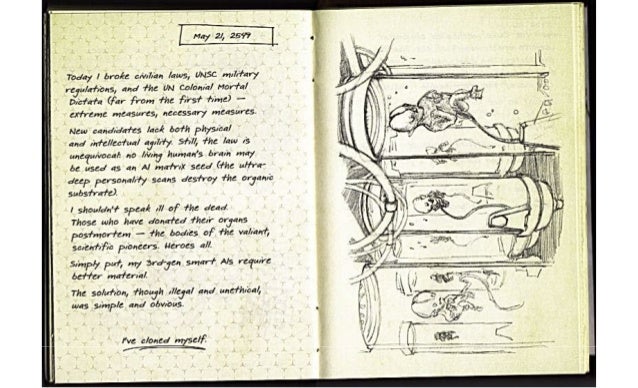 May 21, 2549
Today I broke civilian laws, UNSC military
regulations, and the UN Colonial Mortal
Dictata (far from the first time) —
extreme measures, necessary measures.
New candidates lack both physical
and intellectual agility. Still, the law is
unequivocal: no living human's brain may
be used as an AI matrix seed (the ultra-
deep personality scans destroy the organic
substrate).
I shouldn't speak ill of the dead.
Those who have donated their organs
postmortem — the bodies of the valiant,
scientific pioneers. Heroes all.
Simply put, my 3rd-gen smart AIs require
better material.
The solution, though illegal and unethical,
was simple and obvious.
I've cloned myself.